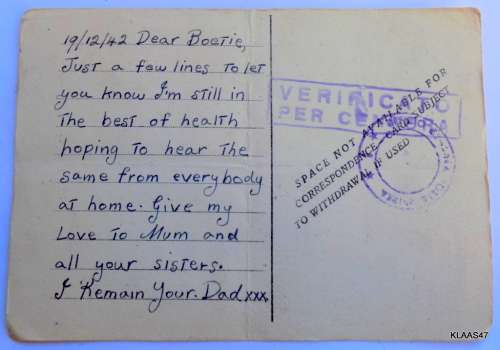 19/12/42 Dear Boetie,
Just a few lines to let
you know I'm still in
the best of health
hoping to hear the
same from everybody
at home. Give my
Love to Mum and
all your sisters.
I Remain Your. Dad xxx.
VERIFICATO
PER CENSURA
SPACE NOT AVAILABLE FOR
CORRESPONDENCE. CARD SUBJECT
TO WITHDRAWAL IF USED
KLAAS47